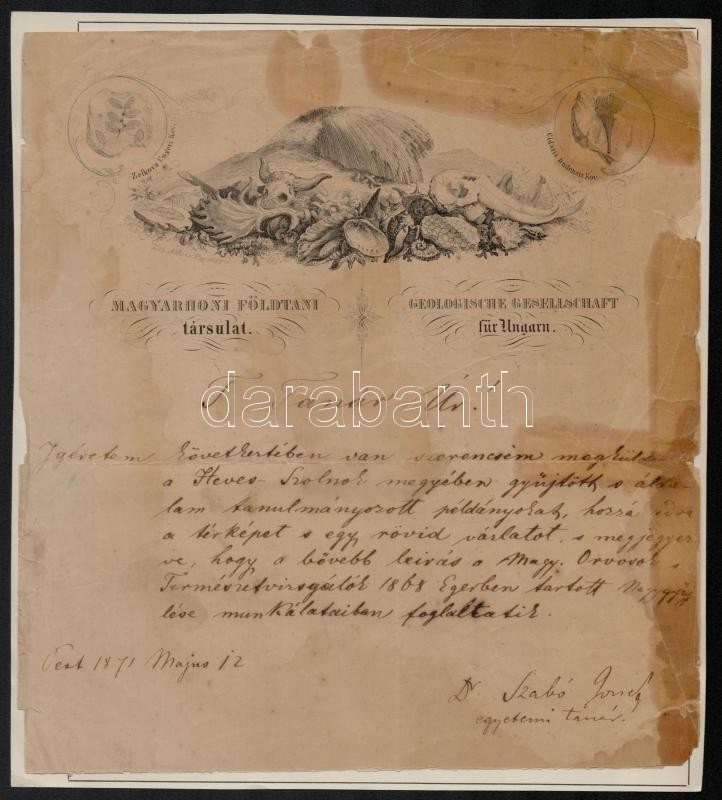 Zelkova Ungeri Kov.
Cidaris Budensis Kov.
MAGYARHONI FÖLDTANI
társulat.
GEOLOGISCHE GESELLSCHAFT
für Ungarn.
T. Tanár Úr!
darabanth
Igéretem következtében van szerencsém megkül
a Heves-Szolnok megyében gyüjtött s álta-
lam tanulmányozott példányokat, hozzá adva
a térképet s egy rövid vázlatot, s megjegyez
ve, hogy a bővebb leirás a Magy. Orvosok s
Természetvizsgálók 1868 Egerben tartott Nagygyű
lése munkálataiban foglaltatik.
Pest 1871 Majus 12
Dr Szabó József
egyetemi tanár.